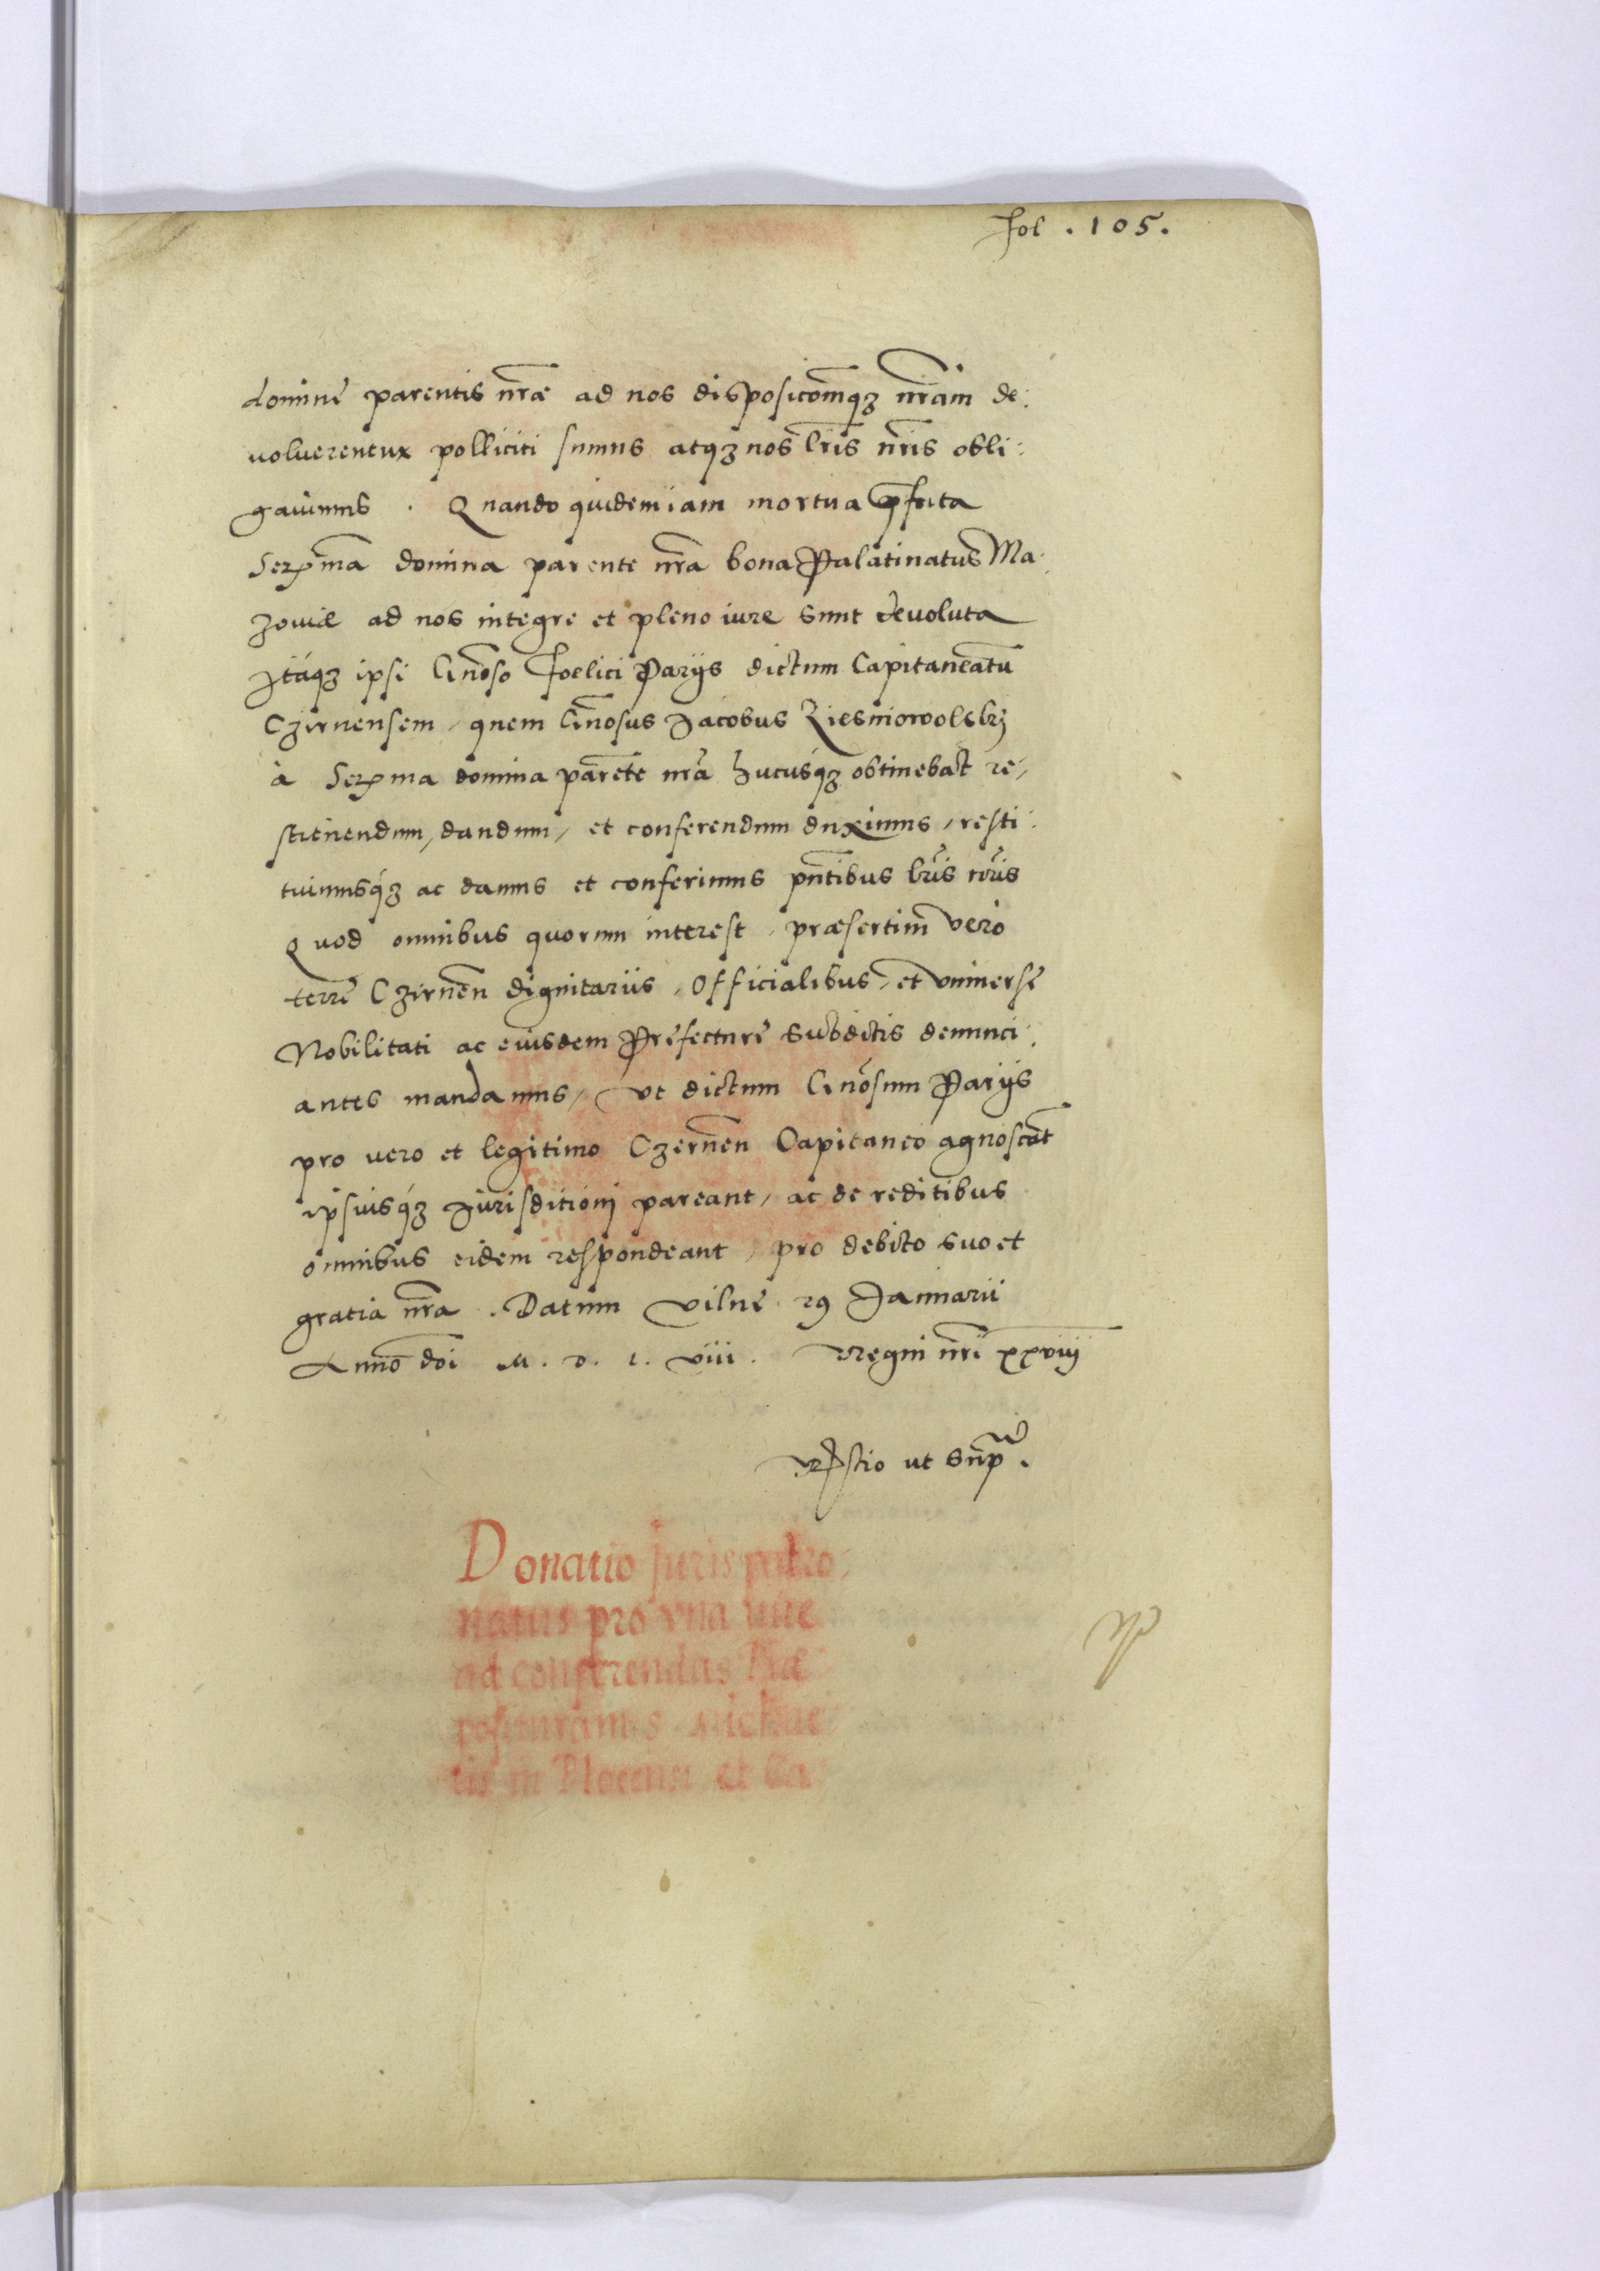 fol . 105.
dominę parentis nr̃æ ad nos disposicõmq3 nr̃am de:
voluerentur polliciti sumus atq3 nos lr̃is nr̃is obli:
gauimus . Quando quidem iam mortua p̃fata
Ser̃ma domina parente nr̃a bona Palatinatus Ma:
zouiæ ad nos integre et pleno iure sunt devoluta
Itaq3 ipsi Gñoso Foelici Parijs dictum Capitaneatũ
Czirnensem, quem Gñosus Jacobus Ziesniowolskj
à Ser̃ma domina parẽte nr̃a hucusq3 obtinebat re,
stituendum, dandum, et conferendum duximus, resti:
tuimusq́3 ac damus et conferimus pñtibus lr̃is nr̃is
Quod omnibus quorum interest, præsertim vero
terrę Czirneñ dignitariis, officialibus, et vniuersę
Nobilitati ac eiusdem Pręfecturę subditis denunci:
antes mandamus, vt dictum Gñosum Parijs
pro vero et legitimo Czerneñ Capitaneo agnoscãt
ipsiusq́3 Jurisditionj pareant, ac de reditibus
omnibus eidem respondeant, pro debito suo et
gratia nr̃a . Datum Vilnę 29 Januarii
Anno dñi M. D. L. viii. Regni nr̃i xxviij
ut sup̃.
Donatio juris patro,
natus pro vna vice
ad conferendas Præ
posituram S. Michae
lis in Plocensi et Ca